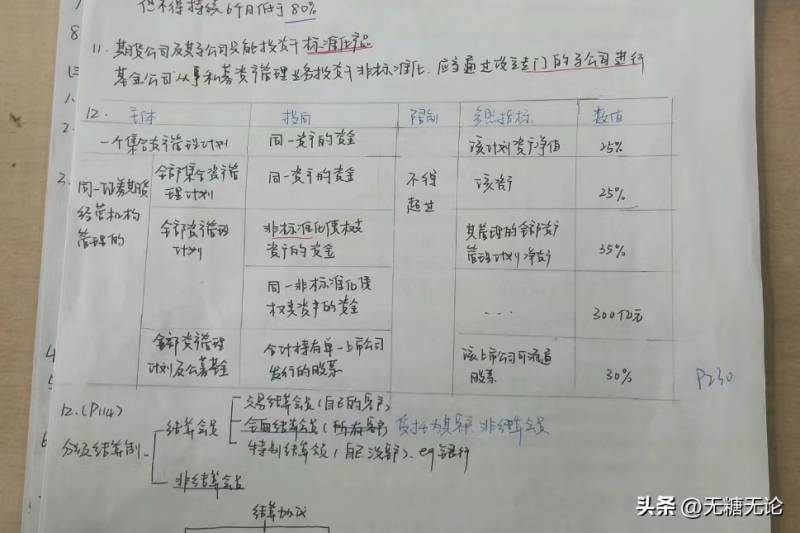 但不得持续6个月低于80%
11. 期货公司及其子公司只能投资于标准化产品
基金公司从事私募资产管理业务投资于非标准化,应当通过设立专门的子公司进行
12. 主体 投向 限制 参照指标 数值
一个集合资产管理计划 同一资产的资金 该计划资产净值 25%
同一证券期货经营机构管理的 全部集合资产管理计划 同一资产的资金 不得超过 该资产 25%
全部资产管理计划 非标准化债权类资产的资金 其管理的全部资产管理计划净资产 35%
同一非标准化债权类资产的资金 ... 300亿元
全部资产管理计划及公募基金 合计持有单一上市公司发行的股票 该上市公司可流通股票 30%
P230
12.(P114)
分级结算制
结算会员
交易结算会员(自己的客户)
全面结算会员(所有客户) 受托为其客户 非结算会员
特别结算会员(自己没客户). eg银行
非结算会员
结算协议
头条 @无糖无论